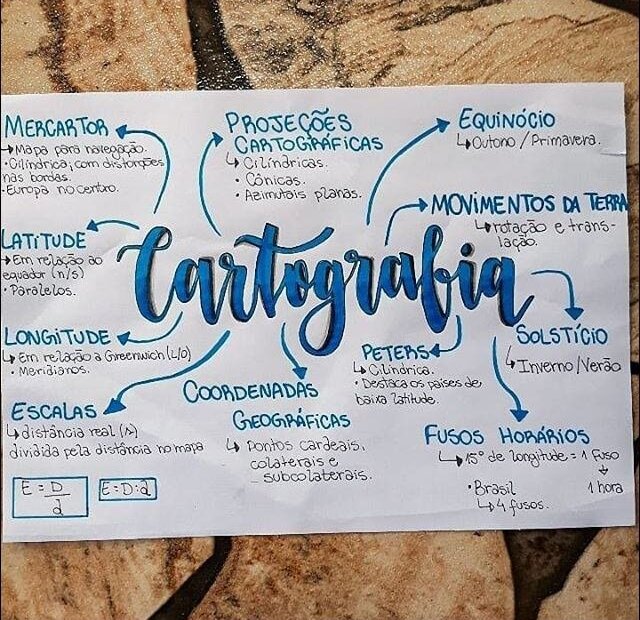 MERCARTOR
↳ Mapa para navegação.
• Cilíndrica, com distorções
nas bordas.
• Europa no centro.
PROJEÇÕES
CARTOGRÁFICAS
↳ Cilíndricas.
• Cônicas.
• Azimutais planas.
EQUINÓCIO
↳ Outono / Primavera.
MOVIMENTOS DA TERRA
↳ rotação e trans-
lação.
LATITUDE
↳ Em relação ao
equador (n/s)
• Paralelos.
Cartografia
LONGITUDE
↳ Em relação a Greenwich (L/O)
• Meridianos.
PETERS
↳ Cilíndrica.
• Destaca os países de
baixa latitude.
SOLSTÍCIO
↳ Inverno/Verão
ESCALAS
↳ distância real
dividida pela distância no mapa
E = D/d
E = D:d
COORDENADAS
GEOGRÁFICAS
↳ Pontos cardeais,
colaterais e
subcolaterais.
FUSOS HORÁRIOS
↳ 15° de longitude = 1 fuso
↓
1 hora
• Brasil
↳ 4 fusos.